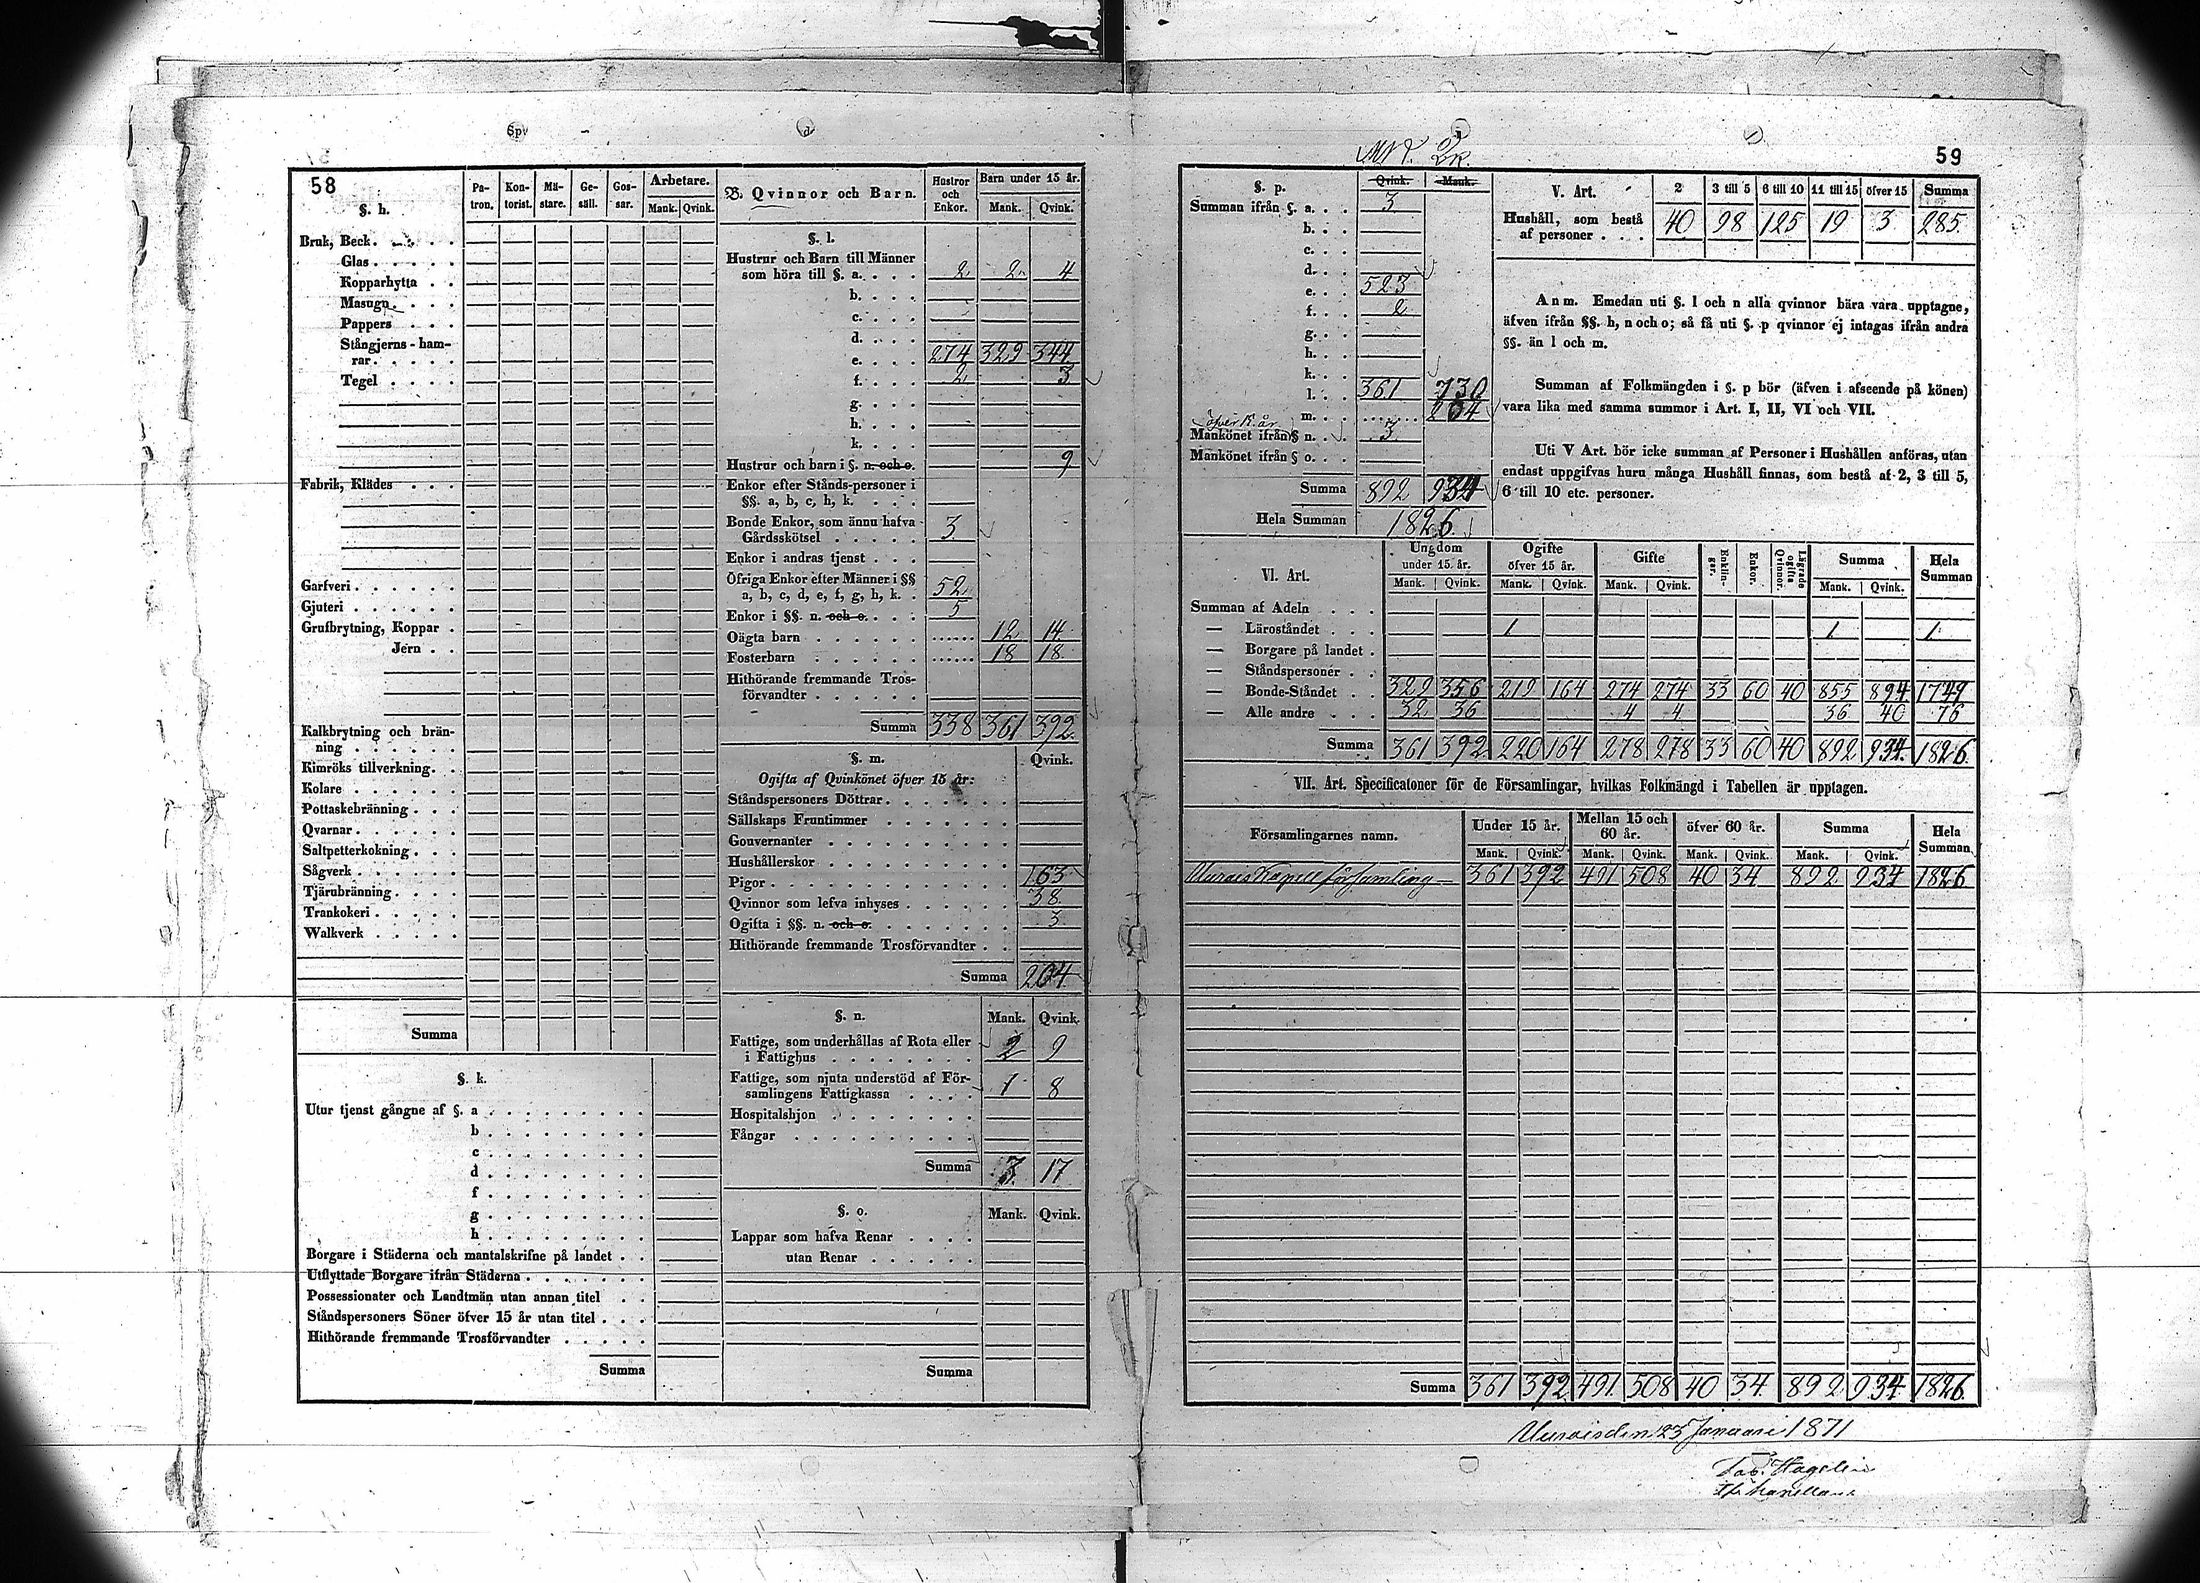 58
§. h.
Pa-tron. Kon-torist. Mä-stare. Ge-säll. Gos-sar. Arbetare. Mank. Qvink.
Bruk, Beck
Glas
Kopparhytta
Masugn
Pappers
Stångjerns-ham-
rar
Tegel
Fabrik, Klädes
Garfveri
Gjuteri
Grufbrytning, Koppar
Jern
Kalkbrytning och brän-
ning
Kimröks tillverkning
Kolare
Pottaskebränning
Qvarnar
Saltpetterkokning
Sågverk
Tjärubränning
Trankokeri
Walkverk
Summa
§. k.
Utur tjenst gångne af §. a
b
c
d
f
g
h
Borgare i Städerna och mantalskrifne på landet
Utflyttade Borgare ifrån Städerna
Possessionater och Landtmän utan annan titel
Ståndspersoners Söner öfver 15 år utan titel
Hithörande fremmande Trosförvandter
Summa
B. Qvinnor och Barn. Hustror och Enkor. Barn under 15 år. Mank. Qvink.
§. l.
Hustrur och Barn till Männer
som höra till §. a. 2 2 4
b.
c.
d.
e. 274 329 344
f. 2 3
g.
h.
k.
Hustrur och barn i §. n. och o. 9
Enkor efter Stånds-personer i
§§. a, b, c, h, k.
Bonde Enkor, som ännu hafva
Gårdsskötsel 3
Enkor i andras tjenst
Öfriga Enkor efter Männer i §§
a, b, c, d, e, f, g, h, k. 52
Enkor i §§. n. och o. 5
Oägta barn 12 14
Fosterbarn 18 18
Hithörande fremmande Tros-
förvandter
Summa 338 361 392
§. m. Qvink.
Ogifta af Qvinkönet öfver 15 år:
Ståndspersoners Döttrar
Sällskaps Fruntimmer
Gouvernanter
Hushållerskor
Pigor 163
Qvinnor som lefva inhyses 38
Ogifta i §§. n. och o. 3
Hithörande fremmande Trosförvandter
Summa 204
§. n. Mank. Qvink.
Fattige, som underhållas af Rota eller
i Fattighus 2 9
Fattige, som njuta understöd af För-
samlingens Fattigkassa 1 8
Hospitalshjon
Fångar
Summa 3 17
§. o. Mank. Qvink.
Lappar som hafva Renar
utan Renar
Summa
59
§. p. Qvink. Mank.
Summan ifrån §. a. 3
b.
c.
d.
e. 523
f. 2
g.
h.
k.
l. 361 730
m. 204
öfver 15 år
Mankönet ifrån § n. 3
Mankönet ifrån § o.
Summa 892 934
Hela Summan 1826
V. Art. 2 3 till 5 6 till 10 11 till 15 öfver 15 Summa
Hushåll, som bestå
af personer 40 98 125 19 3 285
Anm. Emedan uti §. l och n alla qvinnor bära vara upptagne,
äfven ifrån §§. h, n och o; så få uti §. p qvinnor ej intagas ifrån andra
§§. än l och m.
Summan af Folkmängden i §. p bör (äfven i afseende på könen)
vara lika med samma summor i Art. I, II, VI och VII.
Uti V Art. bör icke summan af Personer i Hushållen anföras, utan
endast uppgifvas huru många Hushåll finnas, som bestå af 2, 3 till 5,
6 till 10 etc. personer.
VI. Art. Ungdom under 15. år. Ogifte öfver 15 år. Gifte Enklin-gar. Enkor. Lägrade ogifta Qvinnor. Summa Hela Summan
Mank. Qvink. Mank. Qvink. Mank. Qvink. Mank. Qvink.
Summan af Adeln
— Läroståndet 1 1 1
— Borgare på landet
— Ståndspersoner
— Bonde-Ståndet 329 356 219 164 274 274 33 60 40 855 894 1749
— Alle andre 32 36 4 4 36 40 76
Summa 361 392 220 164 278 278 33 60 40 892 934 1826
VII. Art. Specificatoner för de Församlingar, hvilkas Folkmängd i Tabellen är upptagen.
Församlingarnes namn. Under 15 år. Mellan 15 och 60 år. öfver 60 år. Summa Hela Summan
Mank. Qvink. Mank. Qvink. Mank. Qvink. Mank. Qvink.
Uurais Kapell församling 361 392 491 508 40 34 892 934 1826
Summa 361 392 491 508 40 34 892 934 1826
Uurais den 23 Januari 1871
Hagelin